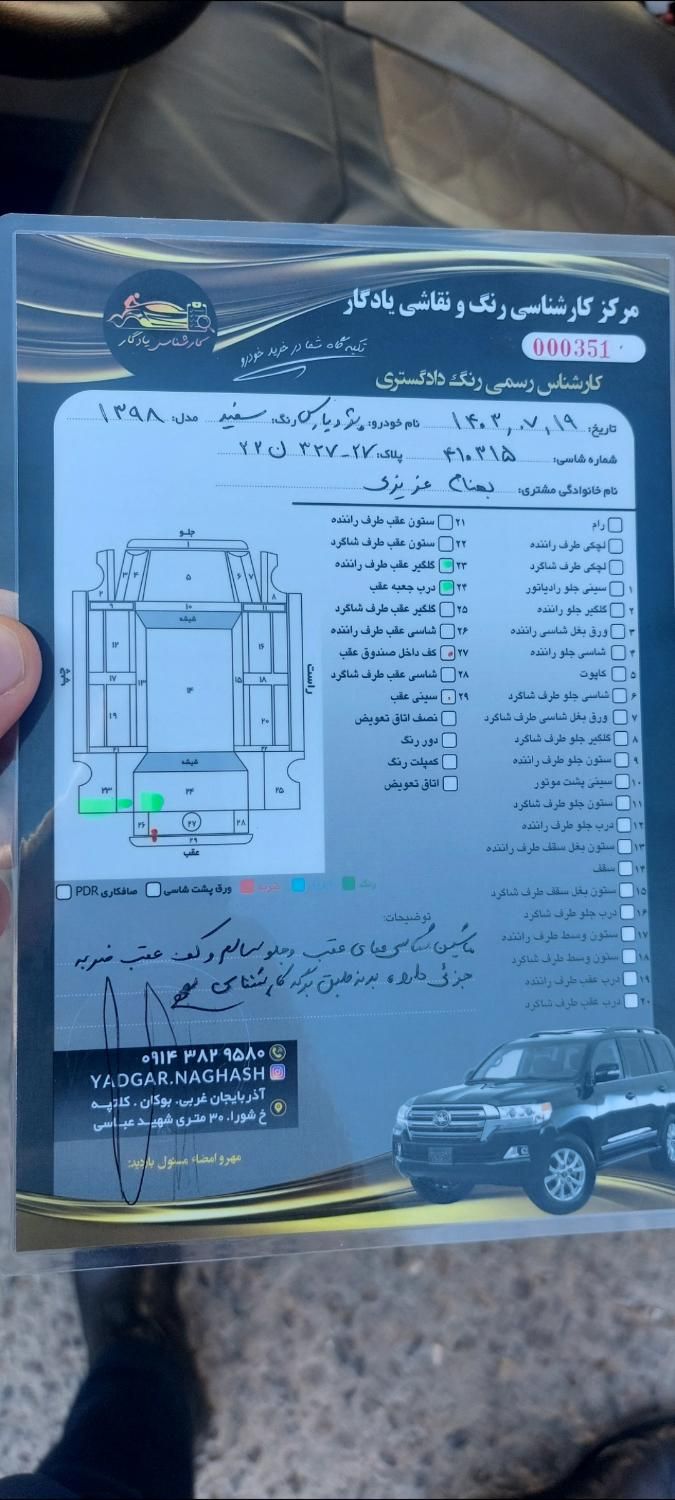 کارشناسی یادگار
مرکز کارشناسی رنگ و نقاشی یادگار
تکیه گاه شما در خرید خودرو
000351
کارشناس رسمی رنگ دادگستری
تاریخ: ۱۴۰۳,۰۷,۱۹ نام خودرو: پژو پارس رنگ: سفید مدل: ۱۳۹۸
شماره شاسی: ۴۱۰۳۱۵ پلاک: ۲۷-۳۲۷ ن ۲۲
نام خانوادگی مشتری: بهنام عزیزی
رام
لچکی طرف راننده
لچکی طرف شاگرد
۱ سینی جلو رادیاتور
۲ گلگیر جلو راننده
۳ ورق بغل شاسی راننده
۴ شاسی جلو راننده
۵ کاپوت
۶ شاسی جلو طرف شاگرد
۷ ورق بغل شاسی طرف شاگرد
۸ گلگیر جلو طرف شاگرد
۹ ستون جلو طرف راننده
۱۰ سینی پشت موتور
۱۱ ستون جلو طرف شاگرد
۱۲ درب جلو طرف راننده
۱۳ ستون بغل سقف طرف راننده
۱۴ سقف
۱۵ ستون بغل سقف طرف شاگرد
۱۶ درب جلو طرف شاگرد
۱۷ ستون وسط طرف راننده
۱۸ ستون وسط طرف شاگرد
۱۹ درب عقب طرف راننده
۲۰ درب عقب طرف شاگرد
۲۱ ستون عقب طرف راننده
۲۲ ستون عقب طرف شاگرد
۲۳ گلگیر عقب طرف راننده
۲۴ درب جعبه عقب
۲۵ گلگیر عقب طرف شاگرد
۲۶ شاسی عقب طرف راننده
۲۷ کف داخل صندوق عقب
۲۸ شاسی عقب طرف شاگرد
۲۹ سینی عقب
نصف اتاق تعویض
دور رنگ
کمپلت رنگ
اتاق تعویض
جلو
۱
۲ ۳ ۴ ۵ ۶ ۷ ۸
۹ ۱۰ ۱۱
شیشه
۱۲ ۱۶
راست
چپ
۱۷ ۱۳ ۱۴ ۱۵ ۱۸
۱۹ ۲۰
۲۱ ۲۲
شیشه
۲۳ ۲۴ ۲۵
۲۶ ۲۷ ۲۸
۲۹
عقب
رنگ ضربه ورق پشت شاسی صافکاری PDR
توضیحات:
ماشین شاسی های عقب و جلو سالم و کف عقب ضربه
جزئی دارد، بدنه طبق برگه کارشناسی
۰۹۱۴ ۳۸۲ ۹۵۸۰
YADGAR.NAGHASH
آذربایجان غربی. بوکان . کلتپه
خ شورا. ۳۰ متری شهید عباسی
مهر و امضاء مسئول بازدید: